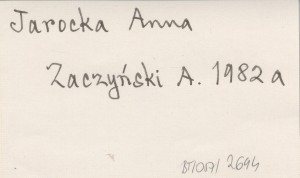 Jarocka Anna
Zaczyński A. 1982a
2694